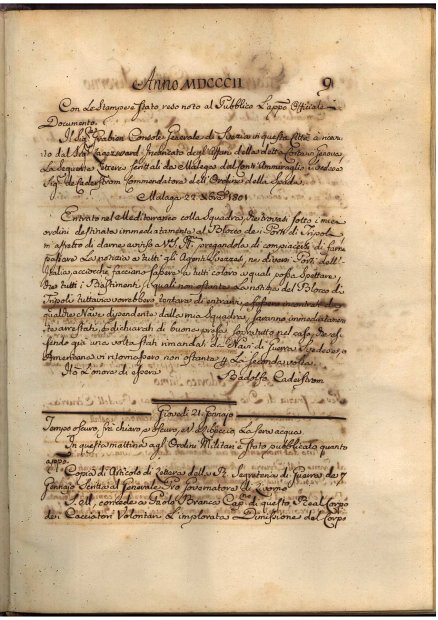 Anno MDCCCII 9
Con le Stampe è stato reso noto al Pubblico l'appo Officiale
Documento.
Il Console Generale di Svezia in questa Città à ricev
uto dal Incaricato degl'affari della detta Corte in Genova
la seguente Lettera scrittali da Malaga dal Contr'Ammiraglio Svedese
Sigr de Cederstrom Commendatore dell'Ordine della Spada.
Malaga 22 1801
Entrato nel Mediterraneo colla Squadra, che trovasi sotto i miei
ordini destinata immediatamente al Blocco de i Porti di Tripoli
m'affretto di darne avviso a V.S. pregandola di compiacersi di farne
passare la notizia a tutti gli Agenti Svezzesi, nei diversi Porti dell'
Italia, acciocchè facciano sapere a tutti coloro a quali possa spettare,
che tutti i Bastimenti, i quali non ostante la notizia del Blocco di
Tripoli tuttavia vorrebbero tentare di entrarvi, e
qualche Nave dipendente dalla mia Squadra, saranno immediatamen
te arrestati, e dichiarati di buona presa, sopra tutto nel caso, che es
sendo già una volta stati rimandati da Navi di Guerra Svedesi, o
Americane vi ritornassero non ostante la seconda volta.
Hò l'onore di essere Rodolfo Cederstrom
Giovedì 21 Gennajo
Tempo oscuro, trà chiaro, e scuro, e Libeccio, la sera acqua
In questa mattina agl'Ordini Militari è stato pubblicato quanto
appo
Copia di Articolo di Lettera della R. Segreteria di Guerra de 7
Gennajo scritta al Generale Pro Governatore di Livorno
S.M. concede a Paolo Branca Capo di questo Real Corpo
dei Cacciatori Volontari l'implorata Dimissione del Corpo